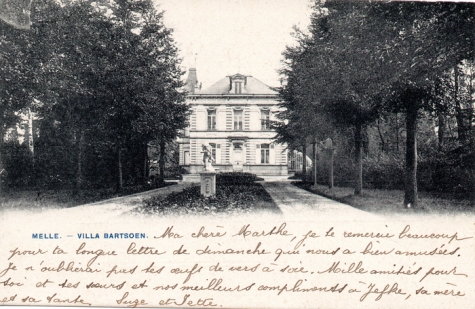 MELLE. - VILLA BARTSOEN. Ma chère Marthe, je te remercie beaucoup
pour ta longue lettre de dimanche qui nous a bien amusées.
Je n'oublierai pas les œufs de vers à soie. Mille amitiés pour
toi et tes sœurs et nos meilleurs compliments à Jefke, sa mère
et sa tante. Suze et Jette.